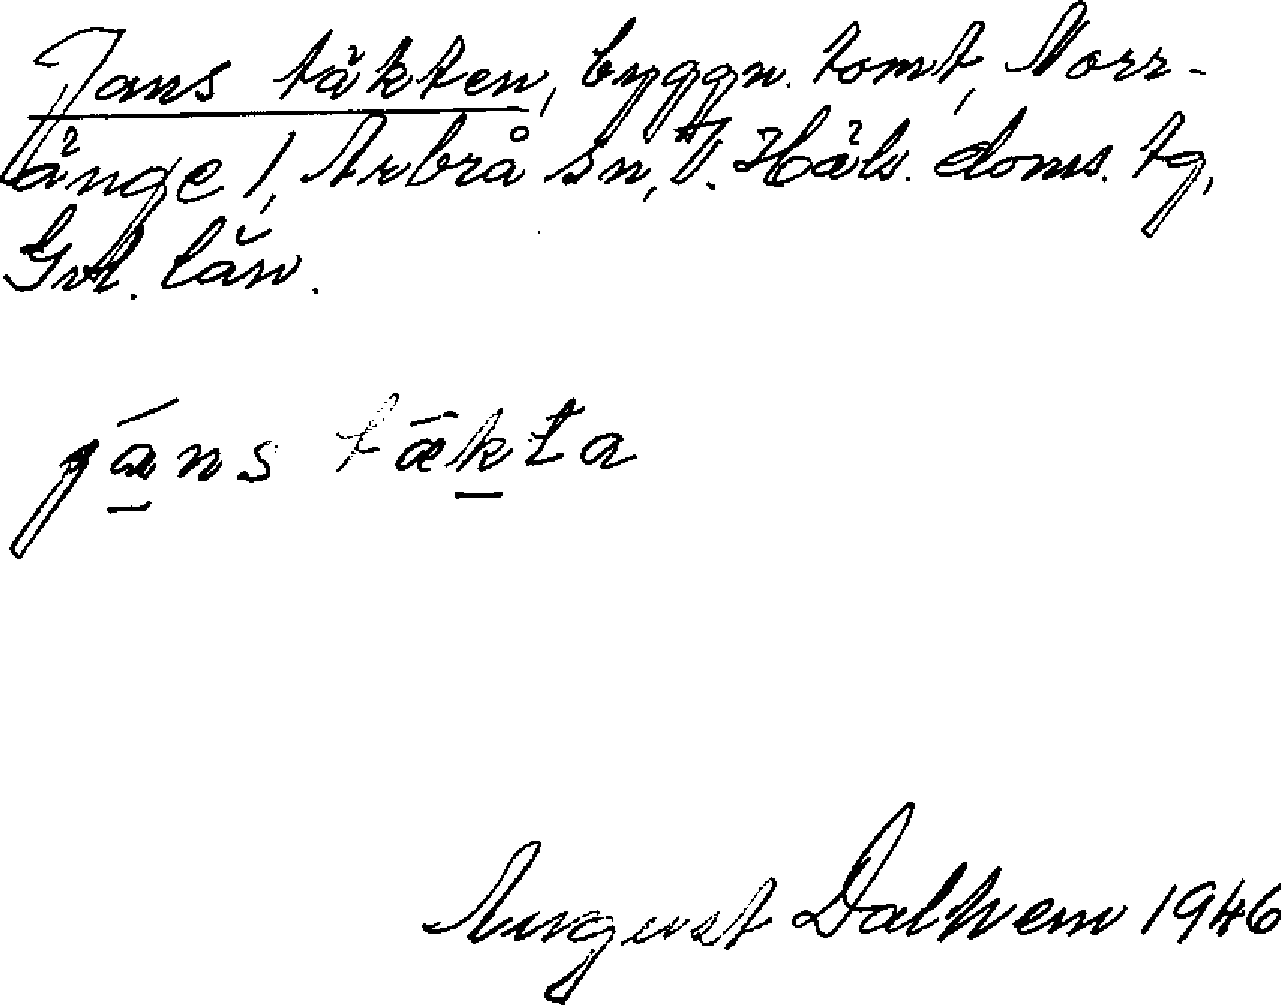 Jans täkten, byggn. tomt, Norr-
änge 1, Arbrå sn, V. Häls. doms. tg,
Gvl. län.
jáns tǣkta
August Dalhem 1946